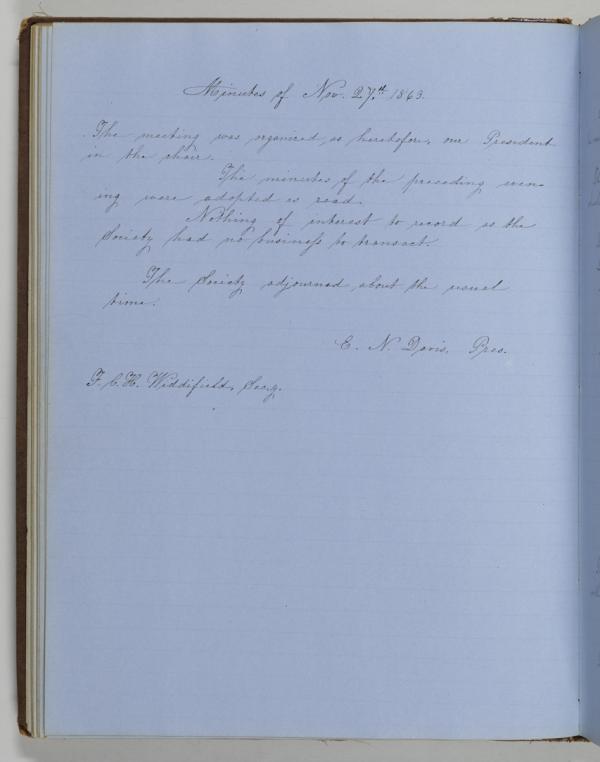 Minutes of Nov. 27th. 1863.
The meeting was organized as heretofore, our President
in the chair.
The minutes of the preceding even-
ing were adopted as read.
Nothing of interest to record as the
Society had no business to transact.
The Society adjourned about the usual
time.
E. N. Davis, Pres.
F. C. H. Widdifield, Sec.y.